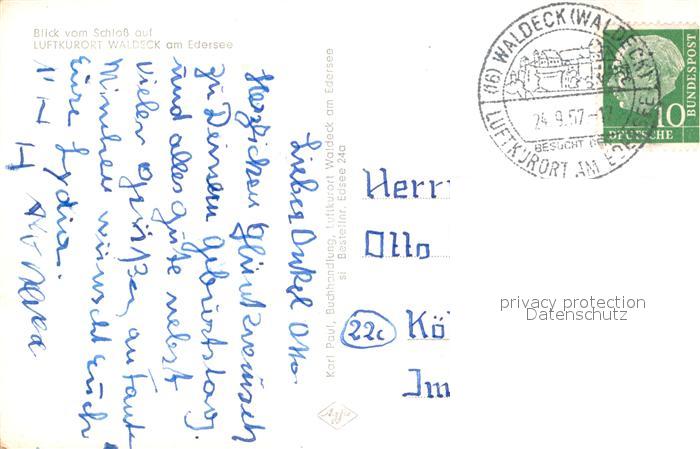 Blick vom Schloß auf
LUFTKURORT WALDECK am Edersee
Lieber Onkel Otto.
Herzlichen Glückwunsch
zu Deinem Geburtstag.
und alles gute nebst
vielen Grüßen, an Tante
Minchen wünscht Euch
Eure Lydia.
Karl Paul, Buchhandlung, Luftkurort Waldeck am Edersee
si Bestellnr. Edsee 24a
Agfa
(16) WALDECK (WALDECK)
24.9.57
BESUCHT
LUFTKURORT AM EDERSEE
DEUTSCHE BUNDESPOST
10
Herrn
Otto
22c Kö
Im
privacy protection
Datenschutz